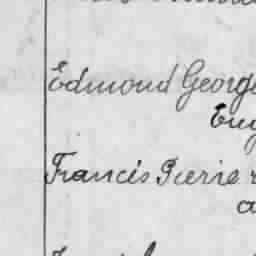 Edmond George
Eug
Francis Pierre
a